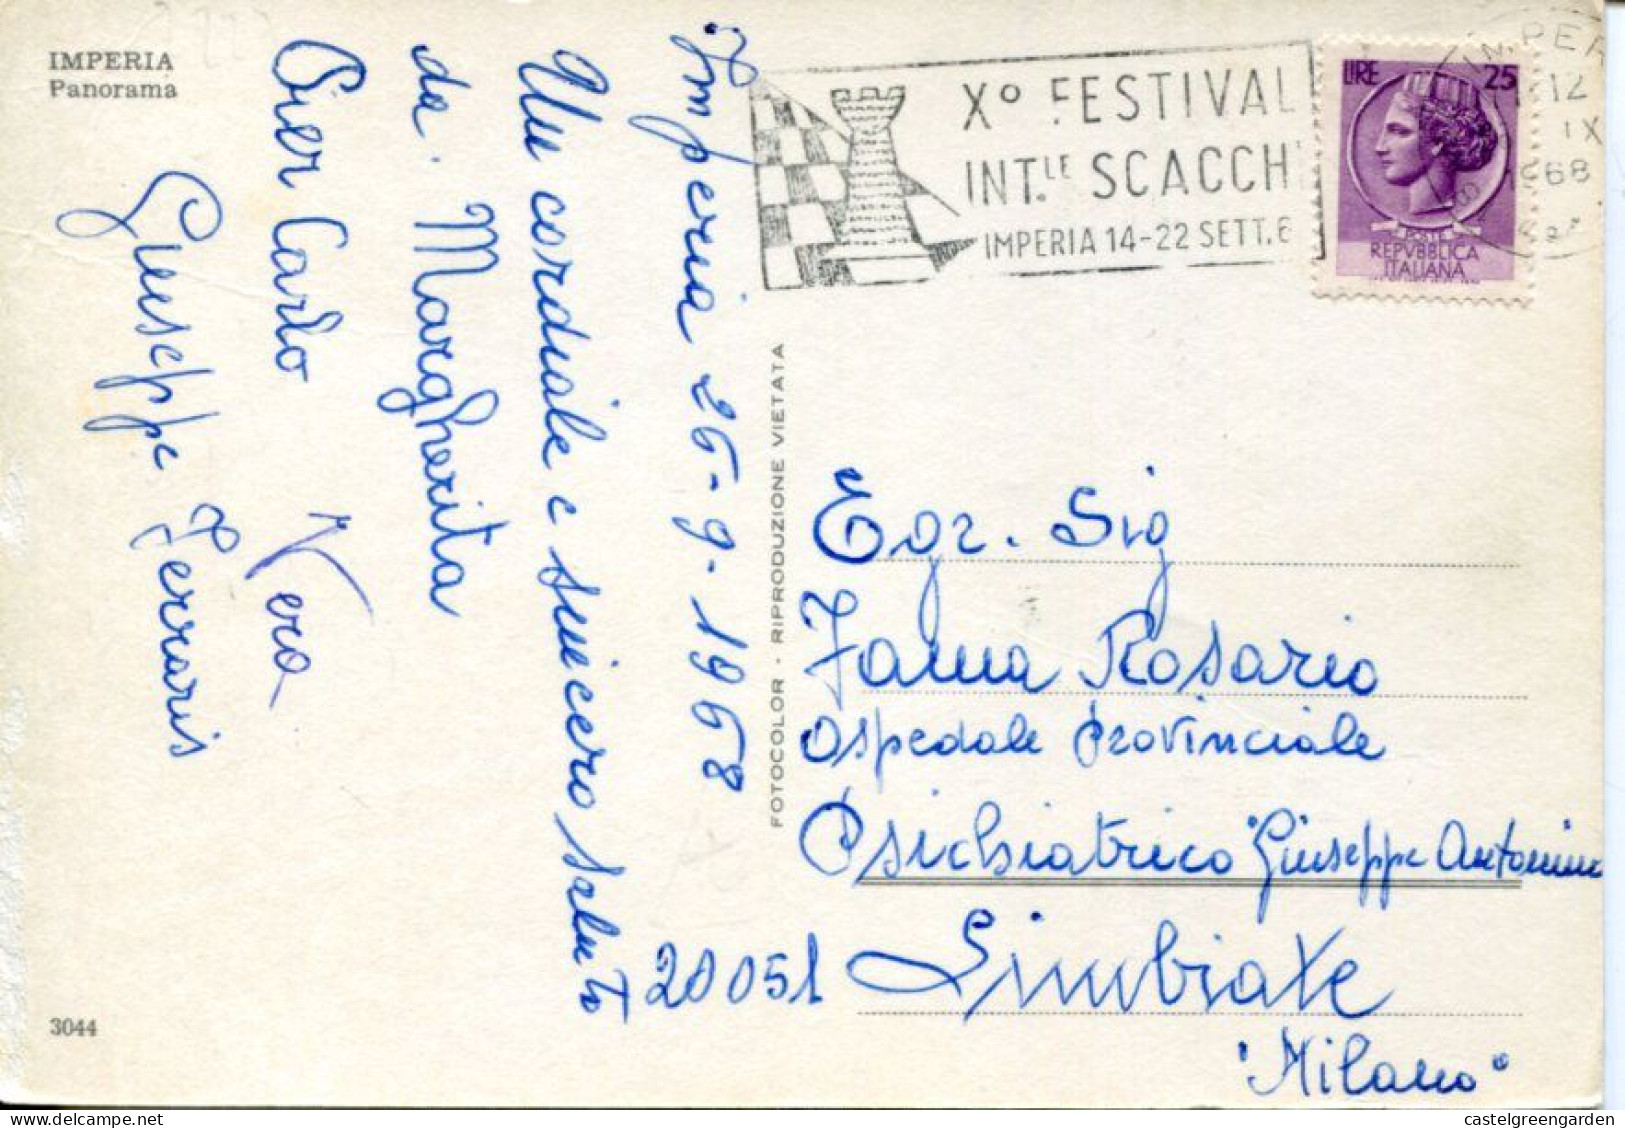 IMPERIA
Panorama
Imperia 26-9-1968
Un cordiale e sincero saluto
da Margherita
Pier Carlo Vera
Giuseppe Ferraris
3044
FOTOCOLOR - RIPRODUZIONE VIETATA
X° FESTIVAL
INT.LE SCACCHI
IMPERIA 14-22 SETT. 6
LIRE 25
POSTE
REPVBBLICA
ITALIANA
IMPER
12
IX
1968
Egr. Sig
Fama Rosario
Ospedale Provinciale
Psichiatrico "Giuseppe Antonini
20051 Limbiate
"Milano"
castelgreengarden